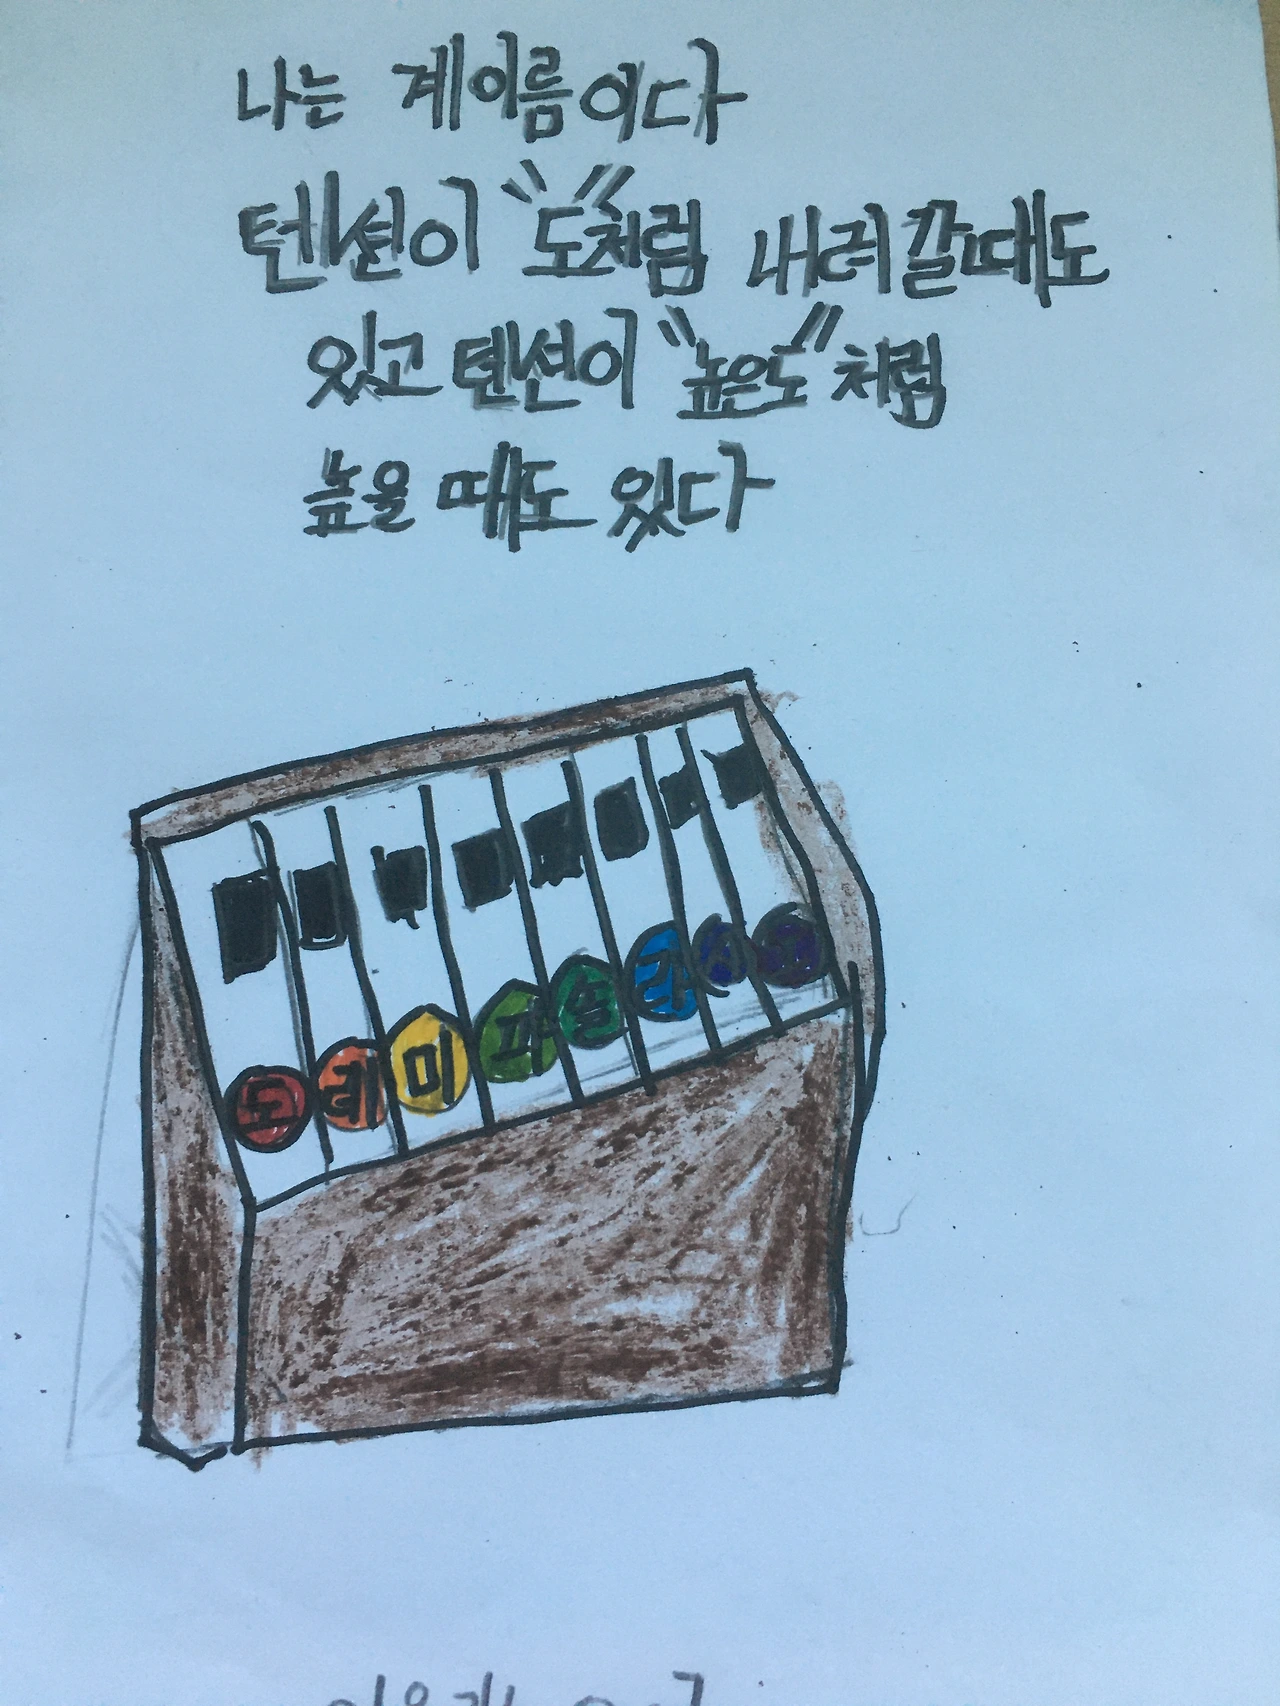 나는 계이름이다
텐션이 "도"처럼 내려갈때도
있고 텐션이 "높은도"처럼
높을 때도 있다
도 레 미 파 솔 라 시 도